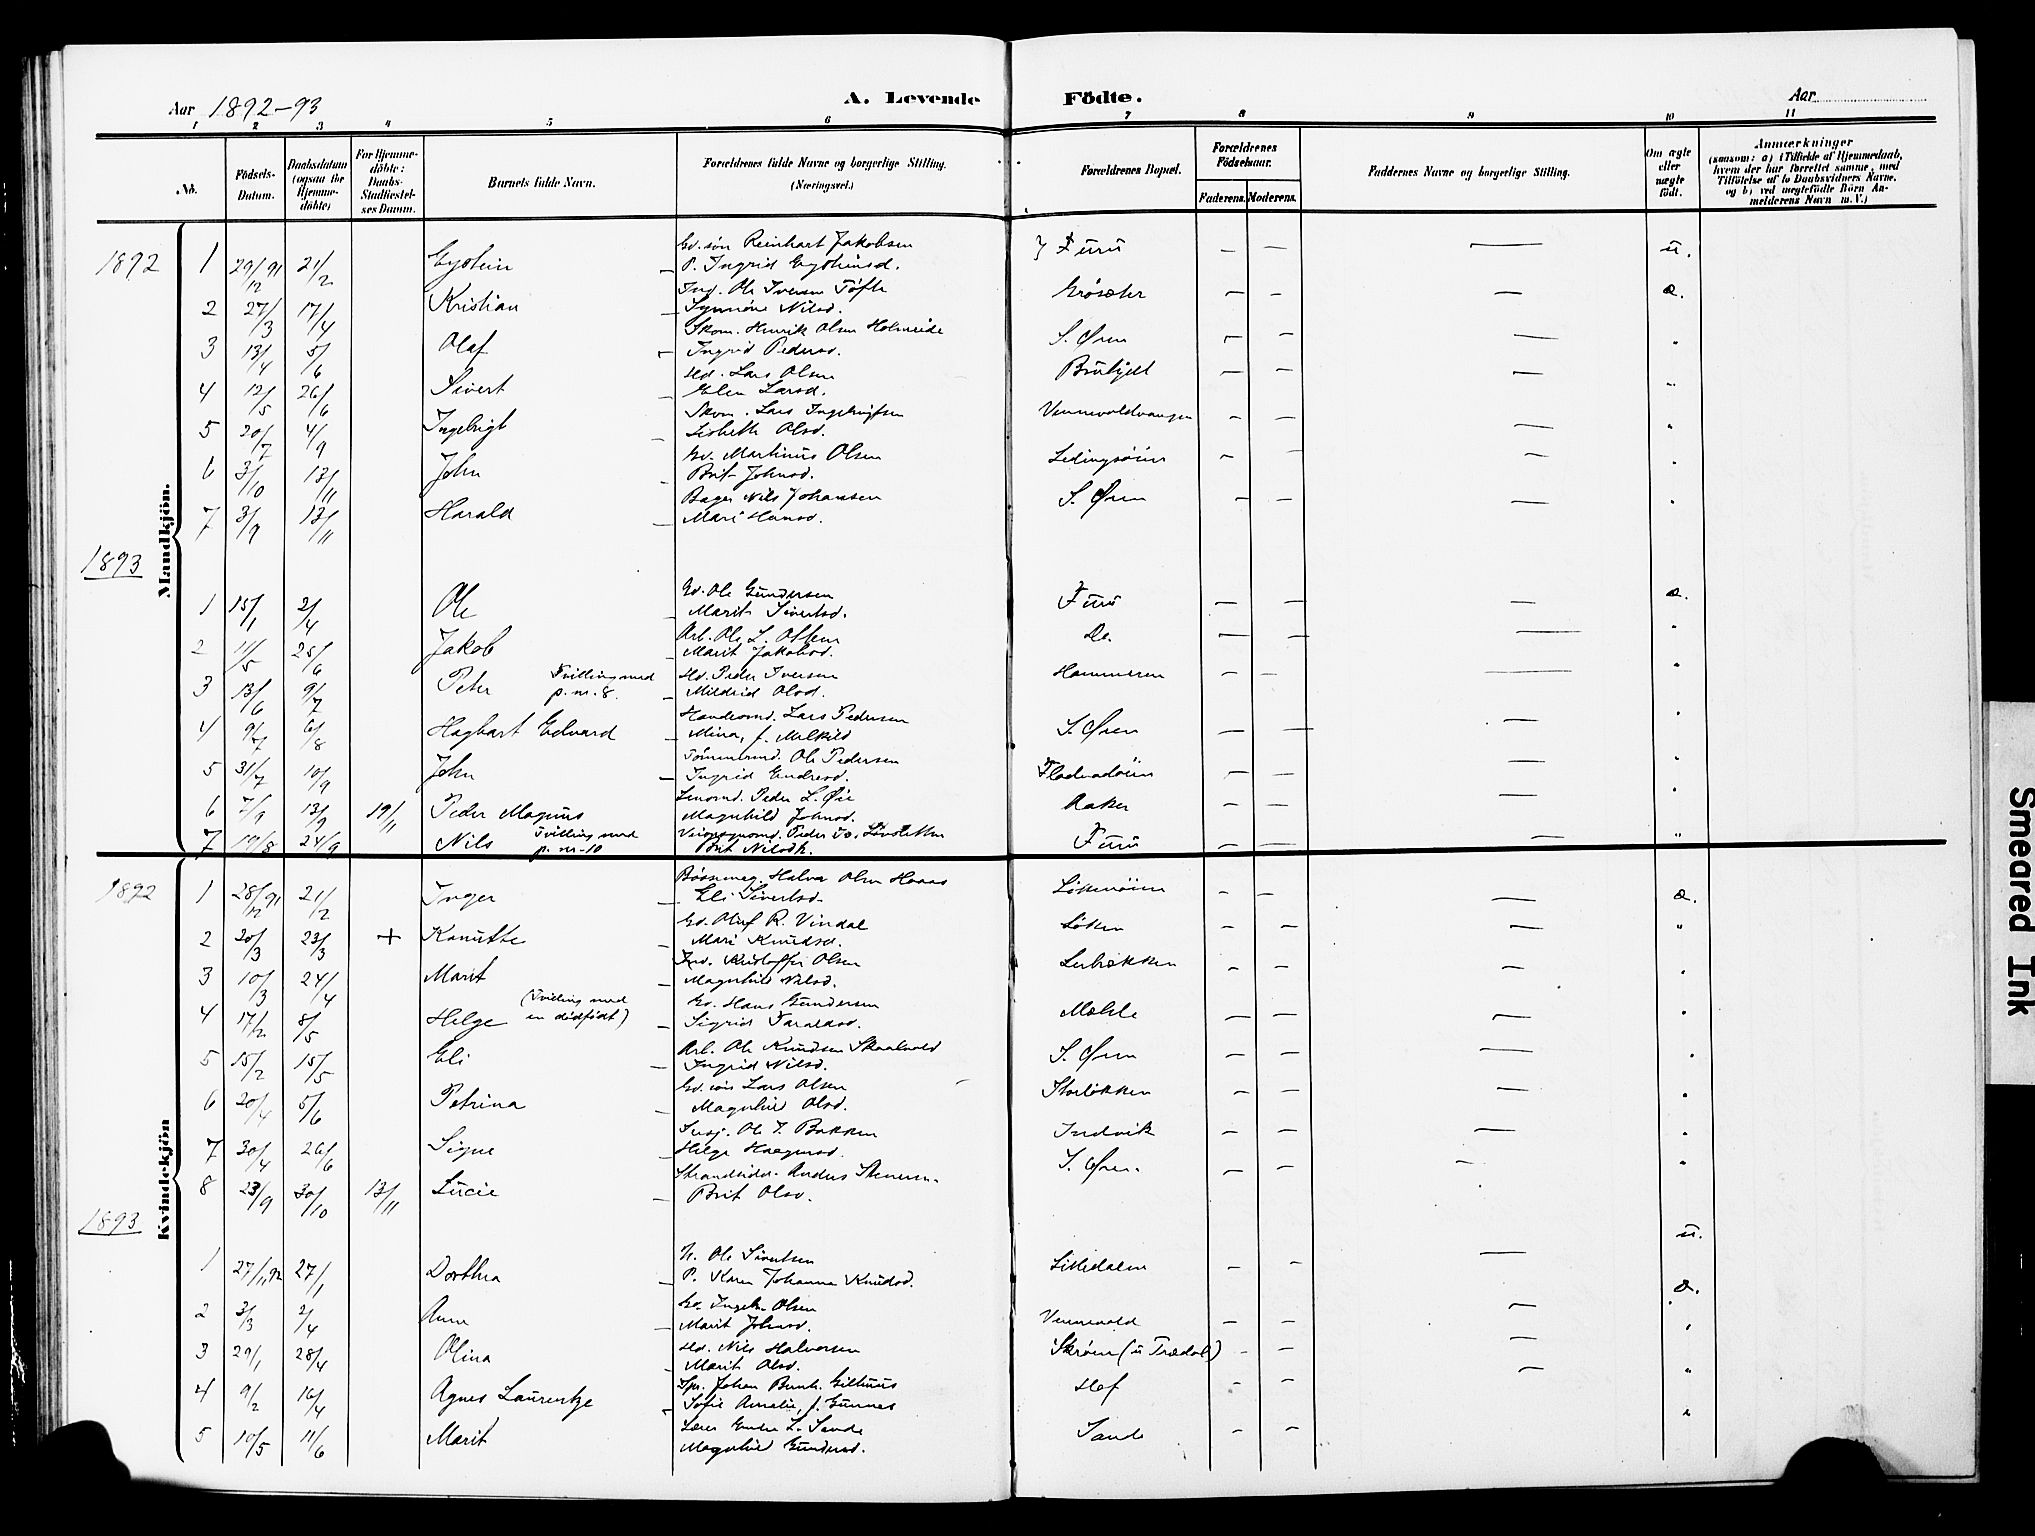 Aar 1892-93 A. Levende Födte. Aar
1 2 3 4 5 6 7 8 9 10 11
No. Födsels-Datum. Daabsdatum (ogsaa for Hjemmedöbte) For Hjemmedöbte: Daabs-Stadfæstelses Datum. Barnets fulde Navn. Forældrenes fulde Navne og borgerlige Stilling. (Næringsvei.) Forældrenes Bopæl. Forældrenes Födselsaar. Faderens. Moderens. Faddernes Navne og borgerlige Stilling. Om ægte eller uægte födt. Anmærkninger (saasom: a) i Tilfælde af Hjemmedaab, hvem der har forrettet samme, med Tilföielse af to Daabsvidners Navne, og b) ved uægtefödte Börn Anmelderens Navn m. V.)
Mandkjön.
1892 1 29/12 91 21/2 Eystein Gd.søn Reinhart Jakobsen Furu — — — u.
P. Ingrid Eysteinsd.
2 27/3 17/4 Kristian Ind. Ole Iversen Tøfte Grøseter — — — æ.
Synnøve Nilsd.
3 13/4 5/6 Olaf Skom. Henrik Olsen Holmeide S. Øren — — — "
Ingrid Pedersd.
4 12/5 26/6 Sivert Hd. Lars Olsen — — — "
Elen Larsd.
5 20/7 4/9 Ingebrigt Skom. Lars Ingebrigtsen Vennevoldvangen — — — "
Lisbeth Olsd.
6 3/10 13/11 John Gd. Martinus Olsen Ledingsøien — — — "
Brit Johnsd.
7 3/9 13/11 Harald Bager Nils Johansen S. Øren — — — "
Mari Hansd.
1893
1 15/1 2/4 Ole Gd. Ole Gundersen Furu — — — æ.
Marit Sivertsd.
2 11/5 25/6 Jakob Arb. Ole L. Do. — — — "
Marit Jakobsd.
3 13/6 9/7 Peter Tvilling med p. nr. 8. Hd. Peder Iversen Hammeren — — — "
Mildrid Olsd.
4 9/7 6/8 Hagbart Edvard Handelsmd. Lars Pedersen S. Øren — — — "
Mina, f. Melkild
5 31/7 10/9 John Tømmermd. Ole Pedersen Fladvadøien — — — "
Ingrid Endresd.
6 7/9 13/9 19/11 Peder Magnus Lensmd. Peder L. Øie Aaker — — — "
Magnhild Johnsd.
7 19/8 24/9 Nils Tvilling med p. nr. 10 Peder Furu — — — "
Brit Nilsdt.
Kvindekjön
1892 1 28/12 91 21/2 Inger Bøssemag. Halvor Olsen Haaas Løkenøien — — — æ.
Eli Sivertsd.
2 20/3 23/3 + Kanutte Gd. Oluf R. Vindal Løken — — — "
Mari Knudsd.
3 10/3 24/4 Marit Ind. Kristoffer Olsen Lerbækken — — — "
Magnhild Nilsd.
4 17/2 8/5 Helge (Tvilling med en dødfødt) Gd. Hans Gundersen Mæhle — — — "
Sigrid Taraldsd.
5 15/2 15/5 Eli Arb. Ole Knudsen Skaalvold S. Øren — — — "
Ingrid Nilsd.
6 20/4 5/6 Petrina Gd. søn Lars Olsen Storløkken — — — "
Magnhild Olsd.
7 30/4 26/6 Signe Ole I. Bakken Indvik — — — "
Helge Haagensd.
8 23/9 30/10 13/11 Lucie Strandsidder Anders Stenersen S. Øren. — — — "
Brit Olsd.
1893
1 27/11 92 27/1 Dorthea U. Ole Sivertsen Lilledalen — — — u.
P. Karen Johanna Knudsd.
2 3/3 2/4 Anne Gd. Ingebr. Olsen Vennevold — — — æ.
Marit Johnsd.
3 29/1 28/4 Olina Hd. Nils Halvorsen Skrøen (u Trædal) — — — "
Marit Olsd.
4 9/2 16/4 Agnes Laurentze Spr. Johan Bernh. Gilhuus Hof — — — "
Sofie Amalie, f. Gunnes
5 10/5 11/6 Marit Lærer Endre L. Sande Sande — — "
Magnhild Gundersd.
Smeared Ink